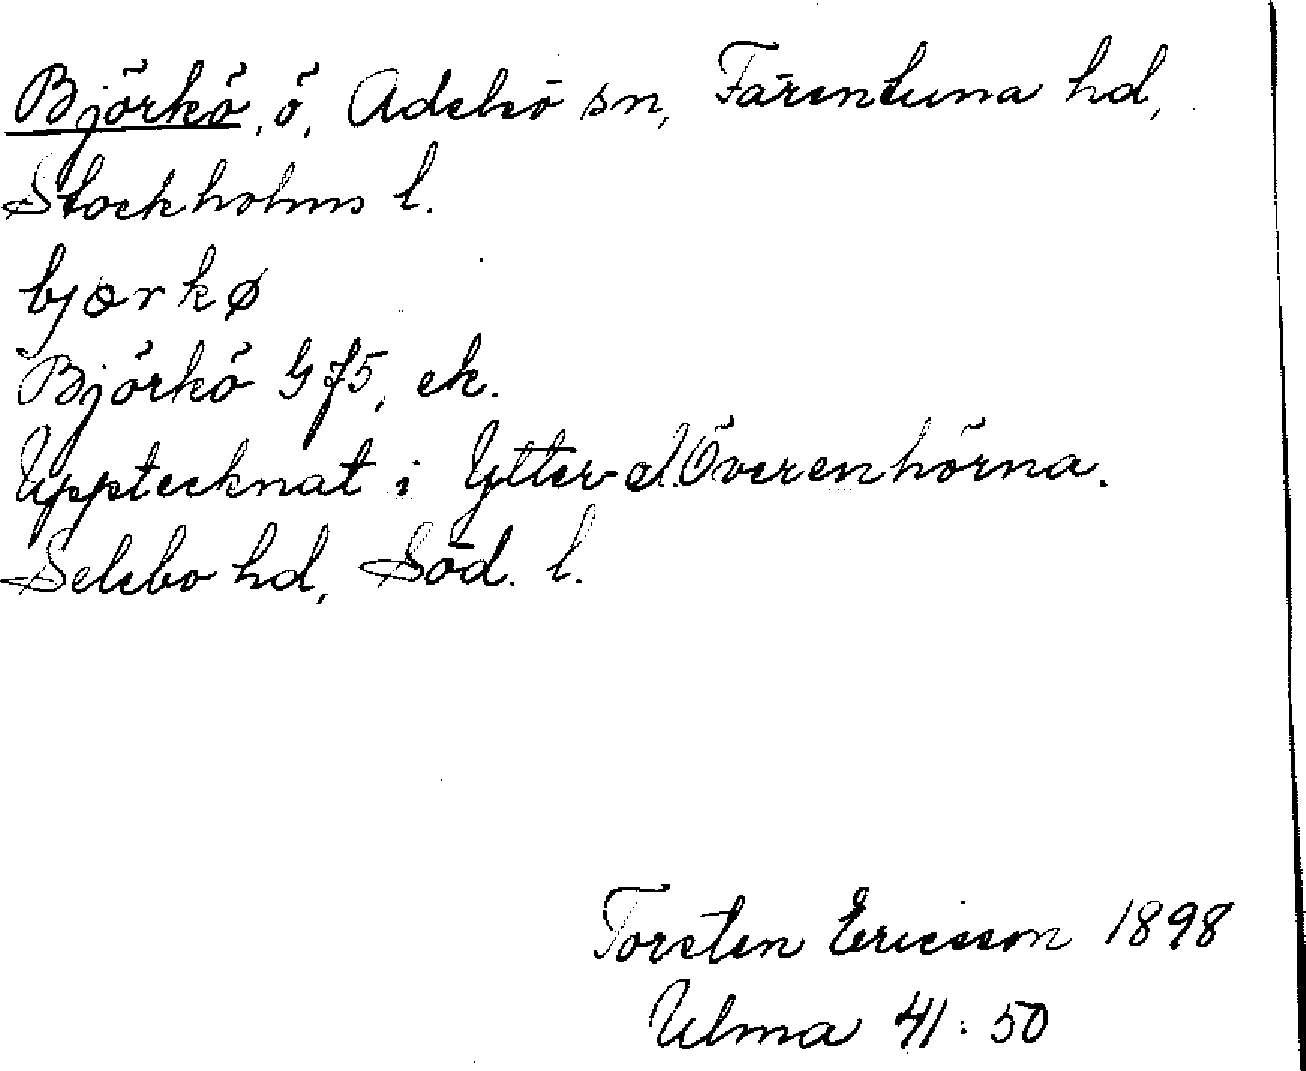 Björkö, ö, Adelsö sn, Färentuna hd,
Stockholms l.
bjærkø
Björkö G f5, ek.
Upptecknat i Ytter- o. Överenhörna.
Selebo hd, Söd. l.
Torsten Ericsson 1898
Ulma 41:50